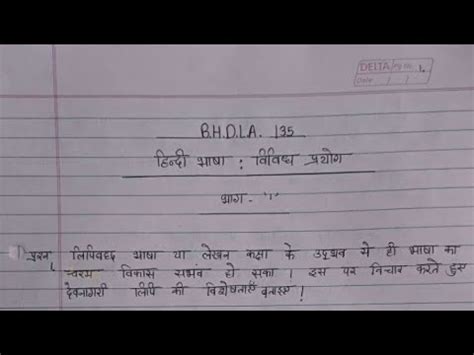 DELTA Pg No. 1
Date / /
B.H.D.L.A. 135
हिन्दी भाषा : विविध प्रयोग
भाग - '1'
प्रश्न 1 लिपिबद्ध भाषा या लेखन कक्षा के उद्भव मे ही भाषा का
चरम विकास संभव हो सका । इस पर विचार करते हुए
देवनागरी लिपि की विशेषताएँ बताइए !